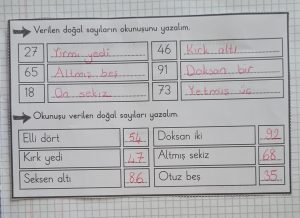 Verilen doğal sayıların okunuşunu yazalım.
27 Yirmi yedi 46 Kırk altı
65 Altmış beş 91 Doksan bir
18 On sekiz 73 Yetmiş üç
Okunuşu verilen doğal sayıları yazalım.
Elli dört 54 Doksan iki 92
Kırk yedi 47 Altmış sekiz 68
Seksen altı 86 Otuz beş 35